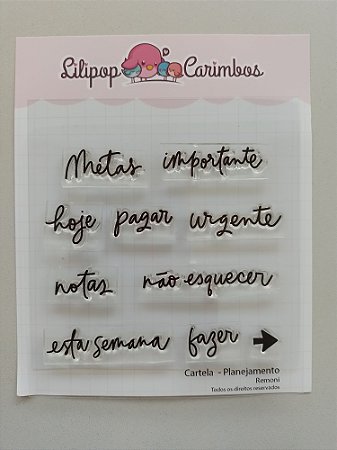 Lilipop Carimbos
Metas importante
hoje pagar urgente
notas não esquecer
esta semana fazer
Cartela - Planejamento
Remoni
Todos os direitos reservados